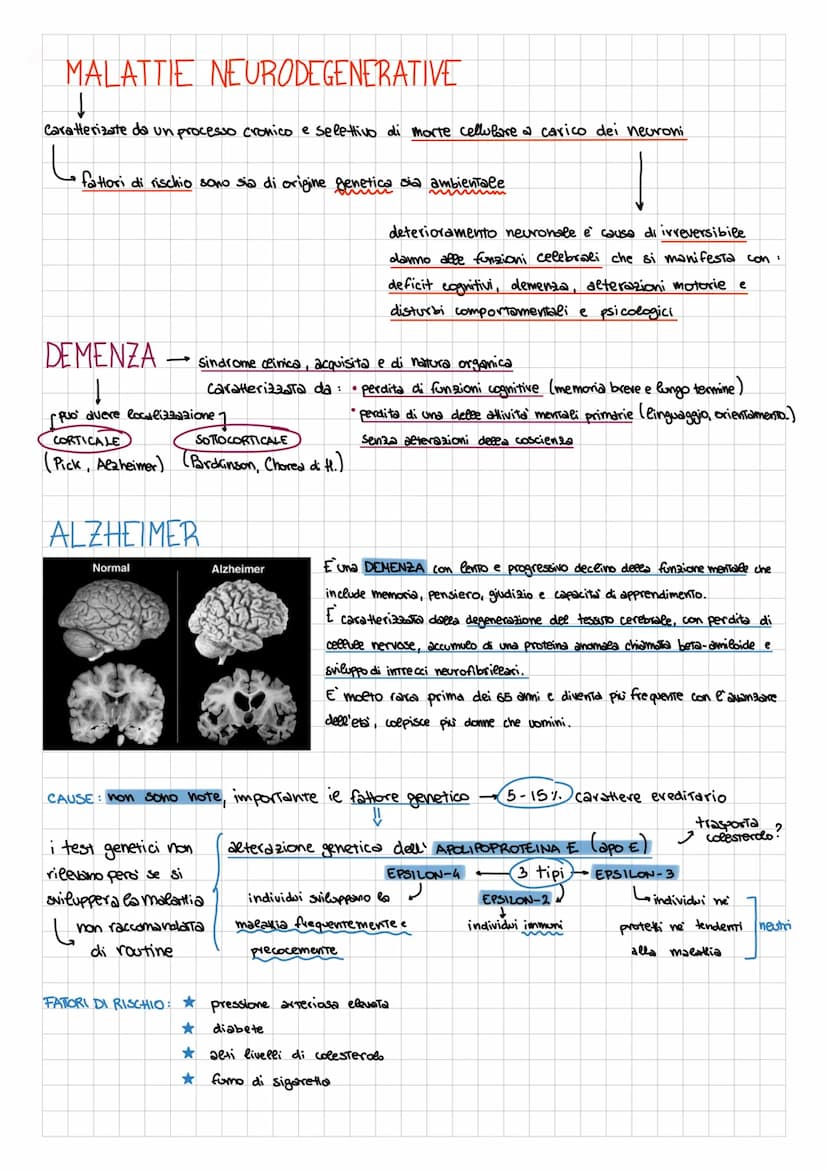 MALATTIE NEURODEGENERATIVE
caratterizzate da un processo cronico e selettivo di morte cellulare a carico dei neuroni
fattori di rischio sono sia di origine genetica sia ambientale
deterioramento neuronale è causa di irreversibile
danno alle funzioni celebrali che si manifesta con:
deficit cognitivi, demenza, alterazioni motorie e
disturbi comportamentali e psicologici
DEMENZA → sindrome clinica, acquisita e di natura organica
caratterizzata da: • perdita di funzioni cognitive (memoria breve e lungo termine)
può avere localizzazione
• perdita di una delle attività mentali primarie (linguaggio, orientamento..)
CORTICALE SOTTOCORTICALE
senza alterazioni della coscienza
(Pick, Alzheimer) (Pardkinson, Chorea di H.)
ALZHEIMER
Normal Alzheimer
È una DEMENZA con lento e progressivo declino della funzione mentale che
include memoria, pensiero, giudizio e capacità di apprendimento.
È caratterizzata dalla degenerazione del tessuto cerebrale, con perdita di
cellule nervose, accumulo di una proteina anomala chiamata beta-amiloide e
sviluppo di intrecci neurofibrillari.
È molto rara prima dei 65 anni e diventa più frequente con l'avanzare
dell'età, colpisce più donne che uomini.
CAUSE: non sono note, importante il fattore genetico → 5-15% carattere ereditario
trasporta
colesterolo?
i test genetici non
rilevano però se si
svilupperà la malattia
non raccomandata
di routine
alterazione genetica dell' APOLIPOPROTEINA E (apo E)
EPSILON-4 ← 3 tipi → EPSILON-3
individui sviluppano la
malattia frequentemente e
precocemente
EPSILON-2
individui immuni
individui né
protetti né tendenti
alla malattia
neutri
FATTORI DI RISCHIO: ★ pressione arteriosa elevata
★ diabete
★ alti livelli di colesterolo
★ fumo di sigaretta